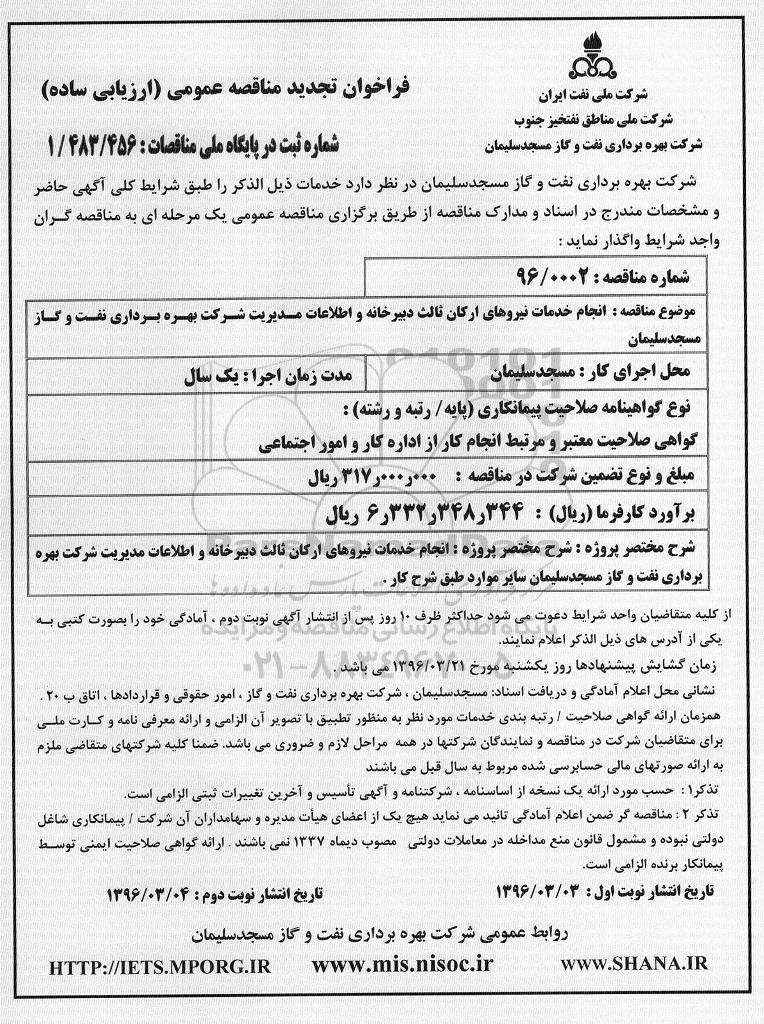 شرکت ملی نفت ایران
شرکت ملی مناطق نفتخیز جنوب
شرکت بهره برداری نفت و گاز مسجدسلیمان
فراخوان تجدید مناقصه عمومی (ارزیابی ساده)
شماره ثبت در پایگاه ملی مناقصات : ۱/۴۸۳/۴۵۶
شرکت بهره برداری نفت و گاز مسجدسلیمان در نظر دارد خدمات ذیل الذکر را طبق شرایط کلی آگهی حاضر
و مشخصات مندرج در اسناد و مدارک مناقصه از طریق برگزاری مناقصه عمومی یک مرحله ای به مناقصه گران
واجد شرایط واگذار نماید :
شماره مناقصه : ۹۶/۰۰۰۲
موضوع مناقصه : انجام خدمات نیروهای ارکان ثالث دبیرخانه و اطلاعات مدیریت شرکت بهره برداری نفت و گاز
مسجدسلیمان
محل اجرای کار : مسجدسلیمان
مدت زمان اجرا : یک سال
نوع گواهینامه صلاحیت پیمانکاری (پایه/ رتبه و رشته) :
گواهی صلاحیت معتبر و مرتبط انجام کار از اداره کار و امور اجتماعی
مبلغ و نوع تضمین شرکت در مناقصه : ۳۱۷٫۰۰۰٫۰۰۰ ریال
برآورد کارفرما (ریال) : ۶٫۳۳۲٫۳۴۸٫۳۴۴ ریال
شرح مختصر پروژه : شرح مختصر پروژه : انجام خدمات نیروهای ارکان ثالث دبیرخانه و اطلاعات مدیریت شرکت بهره
برداری نفت و گاز مسجدسلیمان سایر موارد طبق شرح کار .
از کلیه متقاضیان واحد شرایط دعوت می شود حداکثر ظرف ۱۰ روز پس از انتشار آگهی نوبت دوم ، آمادگی خود را بصورت کتبی به
یکی از آدرس های ذیل الذکر اعلام نمایند.
زمان گشایش پیشنهادها روز یکشنبه مورخ ۱۳۹۶/۰۳/۲۱ می باشد .
نشانی محل اعلام آمادگی و دریافت اسناد: مسجدسلیمان ، شرکت بهره برداری نفت و گاز ، امور حقوقی و قراردادها ، اتاق ب ۲۰ .
همزمان ارائه گواهی صلاحیت / رتبه بندی خدمات مورد نظر به منظور تطبیق با تصویر آن الزامی و ارائه معرفی نامه و کارت ملی
برای متقاضیان شرکت در مناقصه و نمایندگان شرکتها در همه مراحل لازم و ضروری می باشد. ضمنا کلیه شرکتهای متقاضی ملزم
به ارائه صورتهای مالی حسابرسی شده مربوط به سال قبل می باشند
تذکر۱ : حسب مورد ارائه یک نسخه از اساسنامه ، شرکتنامه و آگهی تأسیس و آخرین تغییرات ثبتی الزامی است.
تذکر ۲ : مناقصه گر ضمن اعلام آمادگی تائید می نماید هیچ یک از اعضای هیأت مدیره و سهامداران آن شرکت / پیمانکاری شاغل
دولتی نبوده و مشمول قانون منع مداخله در معاملات دولتی مصوب دیماه ۱۳۳۷ نمی باشند . ارائه گواهی صلاحیت ایمنی توسط
پیمانکار برنده الزامی است.
تاریخ انتشار نوبت اول : ۱۳۹۶/۰۳/۰۳
تاریخ انتشار نوبت دوم : ۱۳۹۶/۰۳/۰۴
روابط عمومی شرکت بهره برداری نفت و گاز مسجدسلیمان
WWW.SHANA.IR
www.mis.nisoc.ir
HTTP://IETS.MPORG.IR
ParsNamadData
پایگاه اطلاع رسانی مناقصه و مزایده
۰۲۱-۸۸۳۴۹۶۷۰-۵